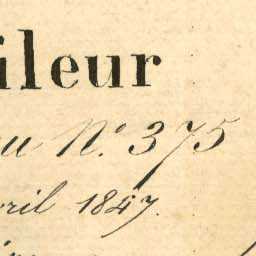 ileur
au N.o 375
vril 1847.